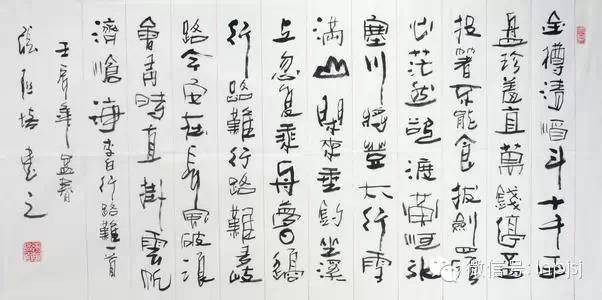 金樽清酒斗十千玉
盤珍羞直萬錢停盃
投箸不能食拔劍四顧
心茫然欲渡黄河冰
塞川將登太行雪
滿山閑來垂釣坐溪
上忽復乘舟夢日邊
行路難行路難多歧
路今安在長風破浪
會有時直掛雲帆
濟滄海 李白行路難一首
壬辰年孟春
書之
微信号: